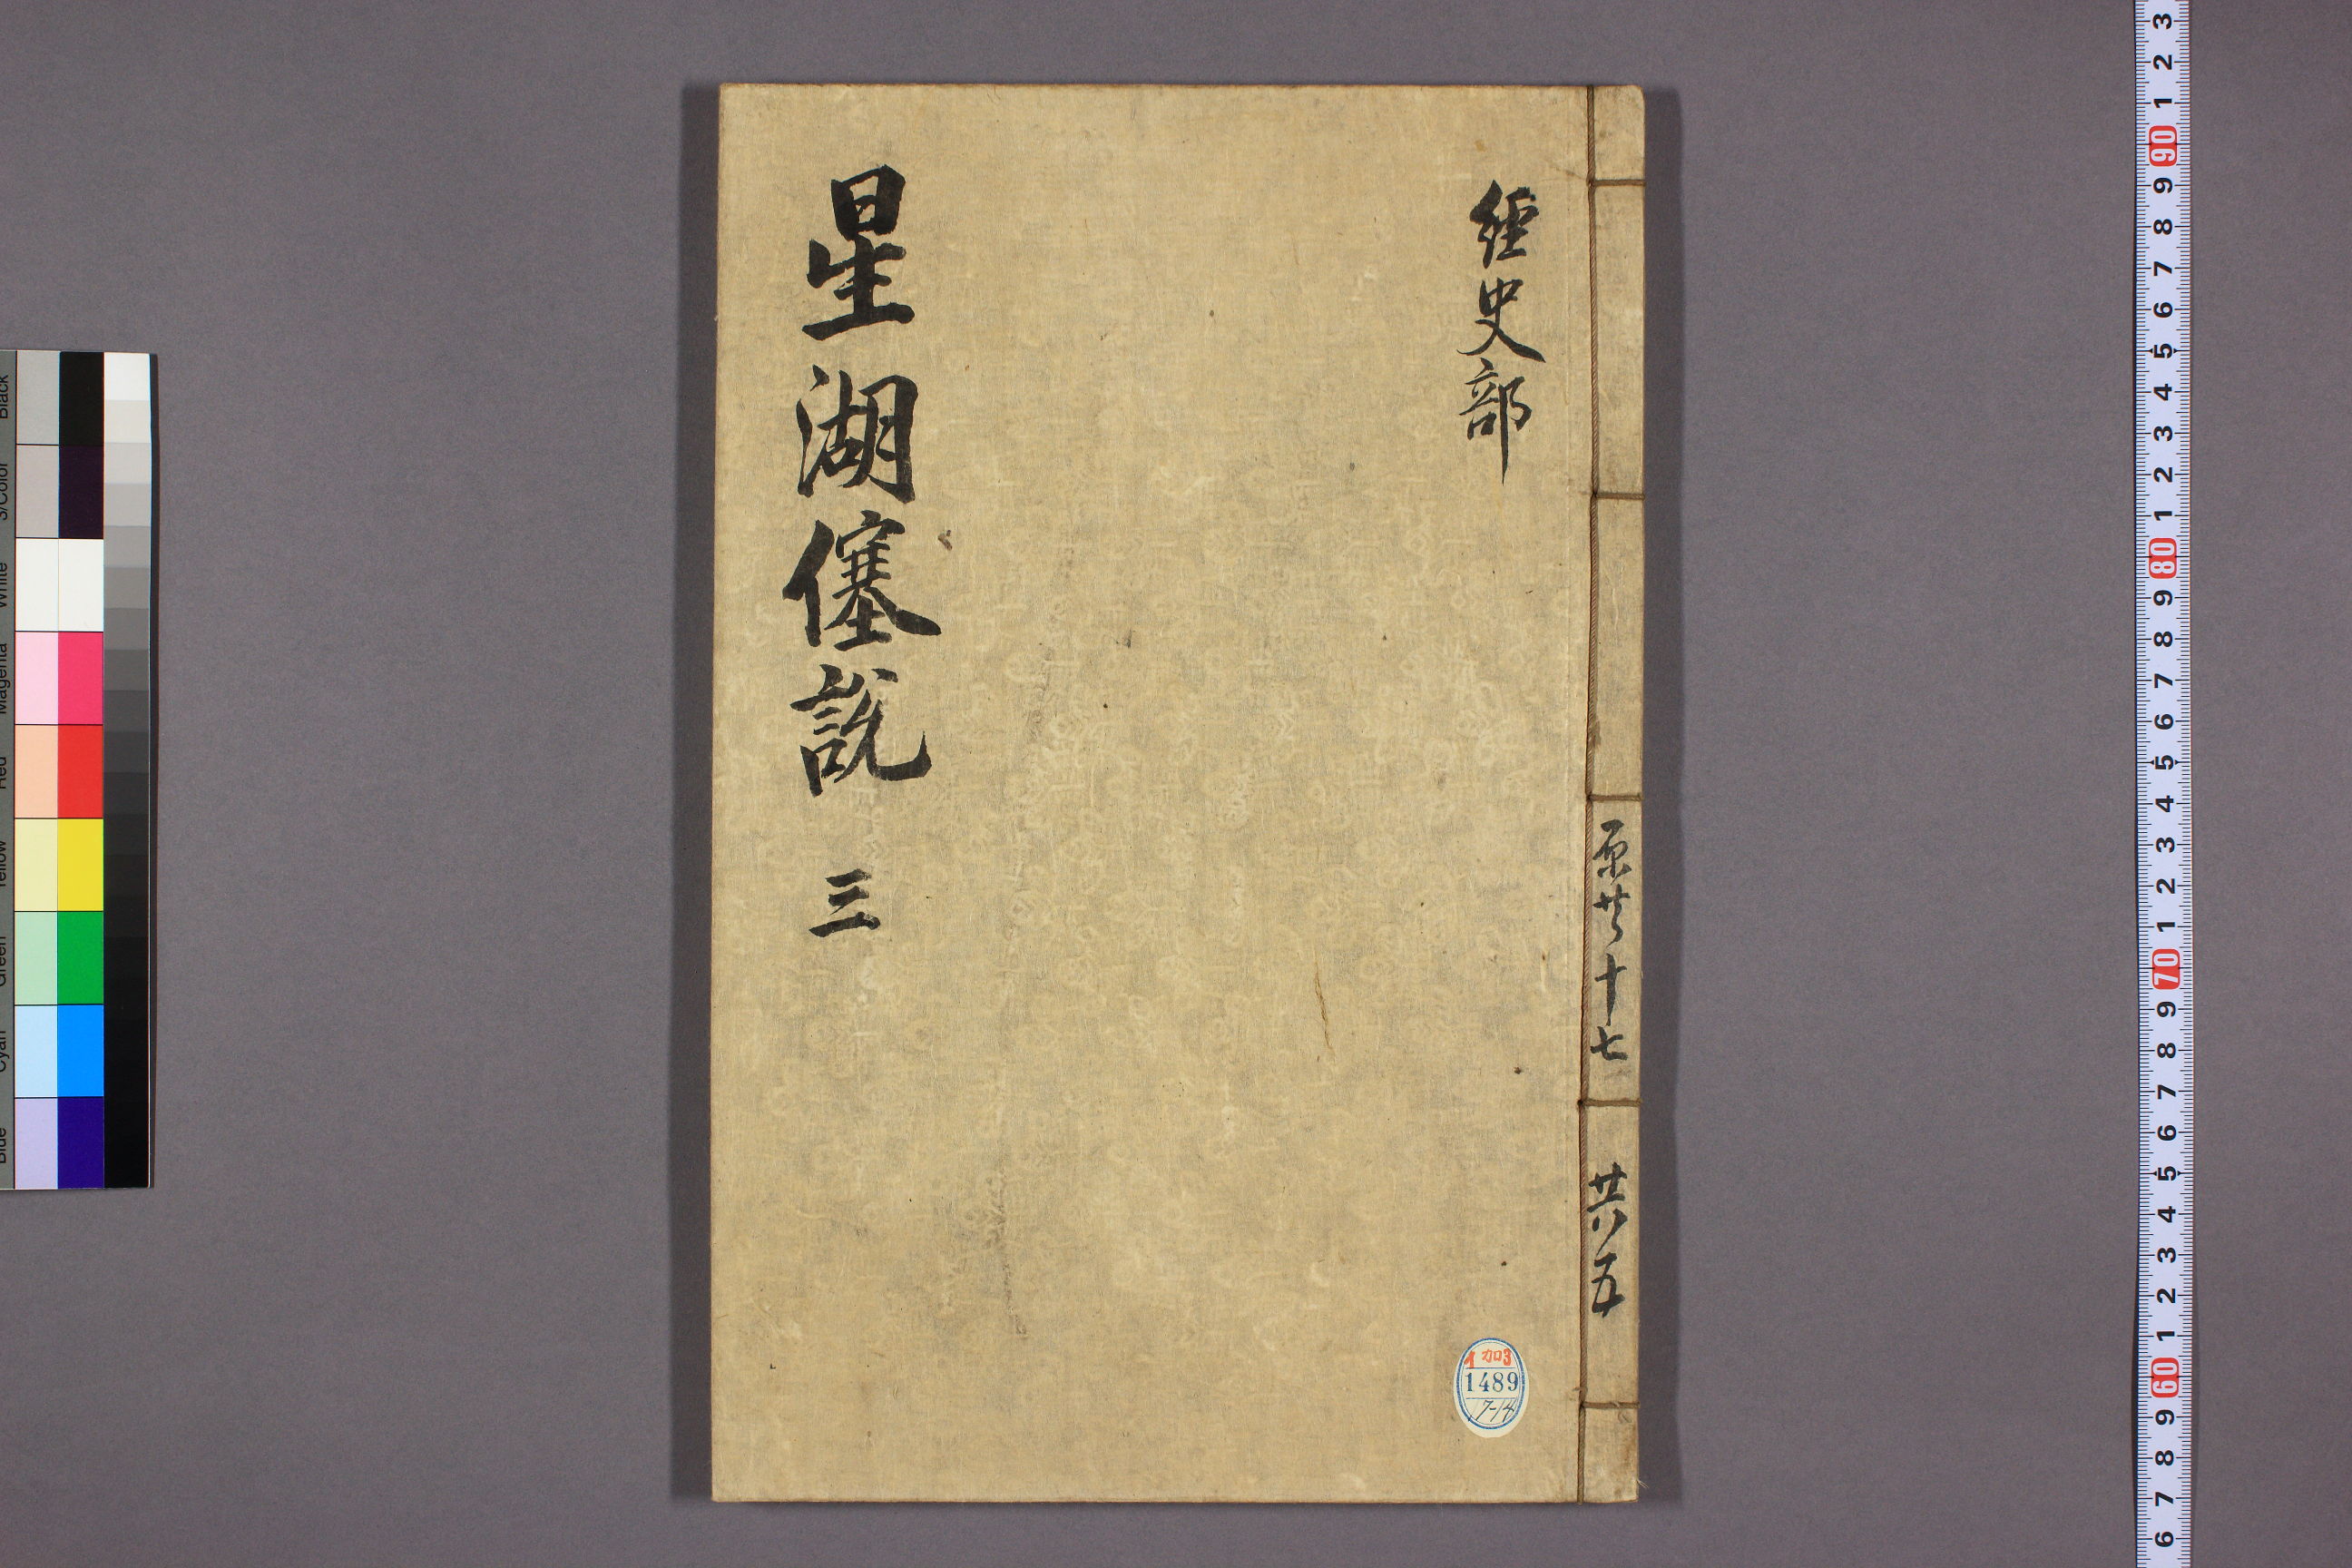 經史部
星湖僿說 三
原共十七
共五
1 加3
1489
17-14
3 2 1 90 9 8 7 6 5 4 3 2 1 80 9 8 7 6 5 4 3 2 1 70 9 8 7 6 5 4 3 2 1 60 9 8 7 6
Blue Cyan Green Yellow Red Magenta White 3/Color Black